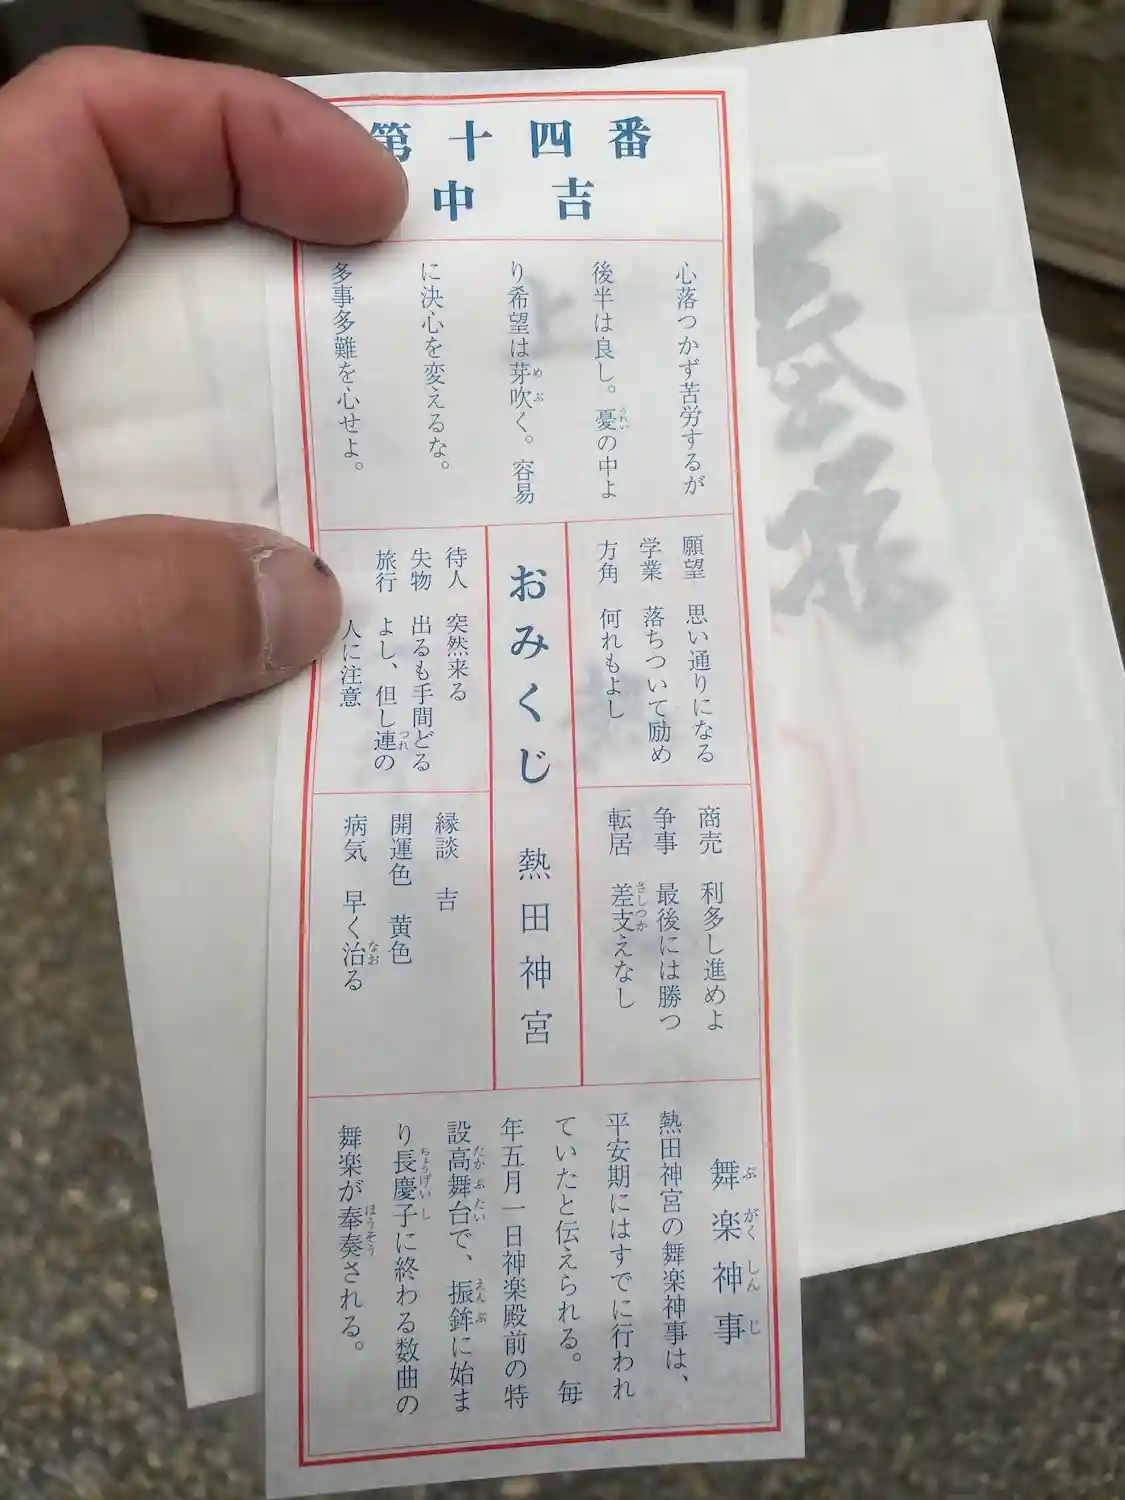 第十四番
中吉
心落つかず苦労するが
後半は良し。憂の中よ
り希望は芽吹く。容易
に決心を変えるな。
多事多難を心せよ。
願望 思い通りになる
学業 落ちついて励め
方角 何れもよし
おみくじ 熱田神宮
待人 突然来る
失物 出るも手間どる
旅行 よし、但し連の
人に注意
商売 利多し進めよ
争事 最後には勝つ
転居 差支えなし
縁談 吉
開運色 黄色
病気 早く治る
舞楽神事
熱田神宮の舞楽神事は、
平安期にはすでに行われ
ていたと伝えられる。毎
年五月一日神楽殿前の特
設高舞台で、振鉾に始ま
り長慶子に終わる数曲の
舞楽が奉奏される。